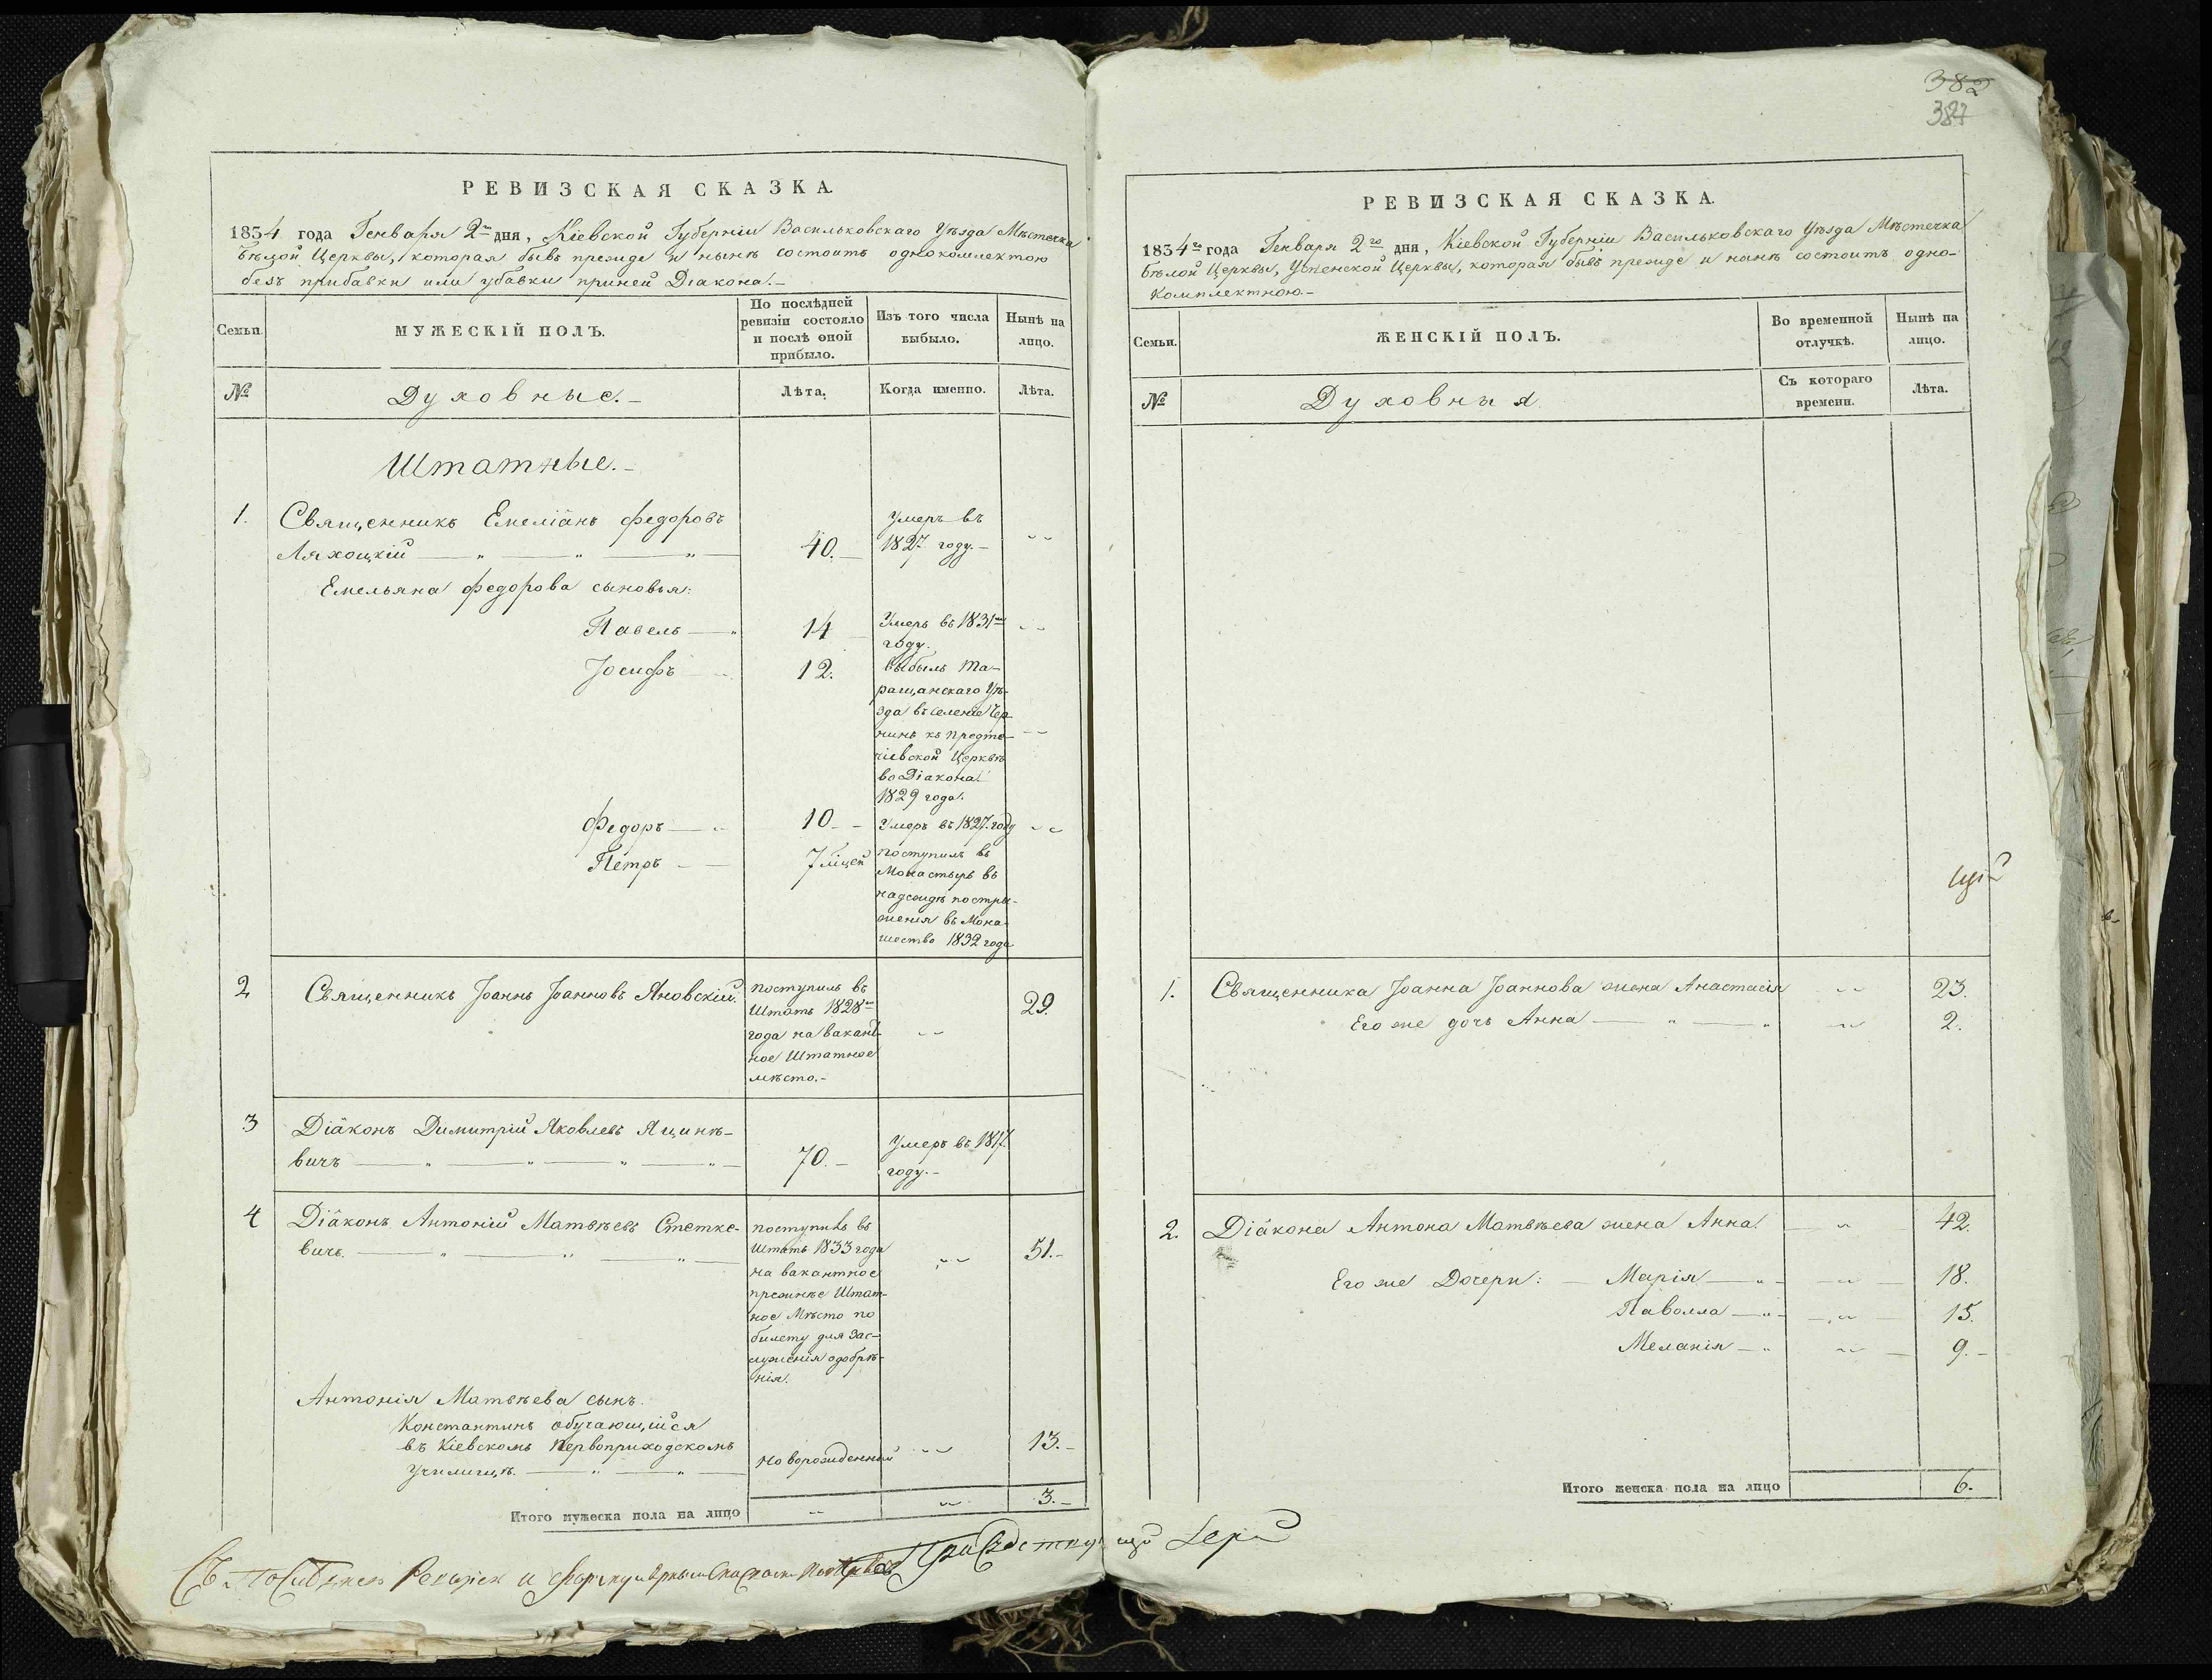 382
387
РЕВИЗСКАЯ СКАЗКА.
1834 года Генваря 2го дня, Кіевской Губерніи Васильковскаго Уѣзда Мѣстечка
Бѣлой Церквы, которая бывъ прежде и нынѣ состоитъ однокомлектою
безъ прибавки или убавки приней Діакона.-
Семьи.
МУЖЕСКІЙ ПОЛЪ.
По послѣдней
ревизіи состояло
и послѣ оной
прибыло.
Изъ того числа
выбыло.
Нынѣ на
лицо.
№
Духовные.-
Лѣта.
Когда именно.
Лѣта.
Штатные.-
1. Священникъ Емеліанъ Федоровъ
Ляхоцкій 40.
Умеръ въ
1827 году.-
Емельяна Федорова сыновья:
Павелъ 14
Умеръ въ 1831мъ
году.
Іосифъ 12.
выбылъ Та-
ращанскаго Уѣ-
зда въ селеніе Чер
нинъ къ Предте-
чіевской Церквѣ
во Діакона
1829 года.
Федоръ 10
Умеръ въ 1827 году
Петръ 7
поступилъ въ
Монастырь въ
надеждѣ постри-
женія въ Мона-
шество 1832 года
2 Священникъ Іоаннъ Іоанновъ Яновскій.
поступилъ въ
Штатъ 1828
года на вакант-
ное Штатное
мѣсто.-
29.
3 Діаконъ Димитрій Яковлевъ Яцинѣ-
вичъ 70.-
Умеръ въ 1817
году.-
4 Діаконъ Антоній Матвѣевъ Стетке-
вичъ.
поступилъ въ
Штатъ 1833 года
на вакантное
прежнѣе Штат-
ное Мѣсто по
билету для зас-
луженія одобрѣ-
нія.
51.-
Антонія Матвѣева сынъ.
Константинъ обучающійся
въ Кіевскомъ первоприходскомъ
Училищѣ.
новорожденный
13.-
Итого мужеска пола на лицо 3.-
РЕВИЗСКАЯ СКАЗКА.
1834го года Генваря 2го дня, Кіевской Губерніи Васильковскаго Уѣзда Мѣстечка
Бѣлой Церквы, Успенской Церквы, которая бывъ прежде и нынѣ состоитъ одно-
комплектною.-
Семьи.
ЖЕНСКІЙ ПОЛЪ.
Во временной
отлучкѣ.
Нынѣ на
лицо.
№
Духовныя
Съ котораго
времени.
Лѣта.
1. Священника Іоанна Іоаннова жена Анастасія 23.
Его же дочь Анна 2.
2. Діакона Антона Матвѣева жена Анна 42.
Его же Дочери: Марія 18.
Паволла 15.
Меланія 9.-
Итого женска пола на лицо 6.